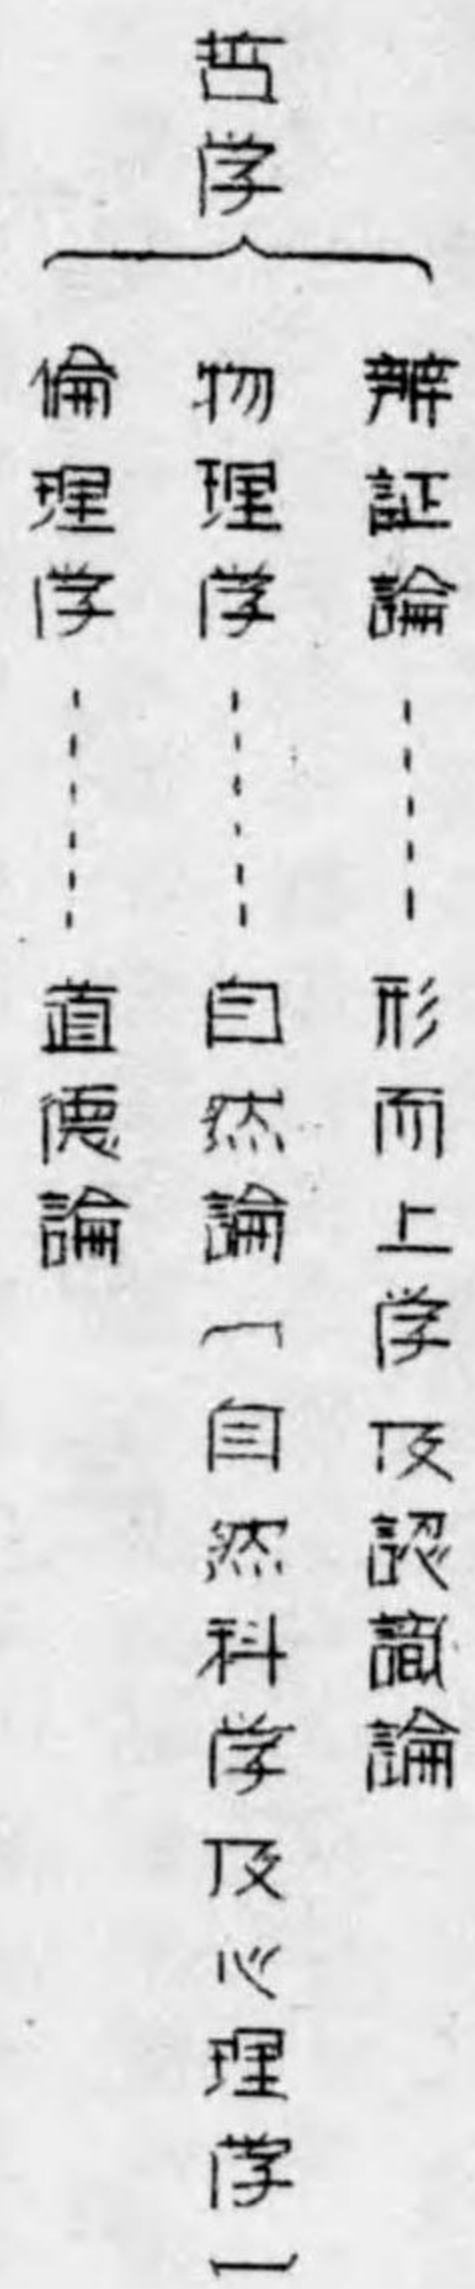 哲学
辨証論-----形而上学及認識論
物理学-----自然論(自然科学及心理学)
倫理学-----道徳論